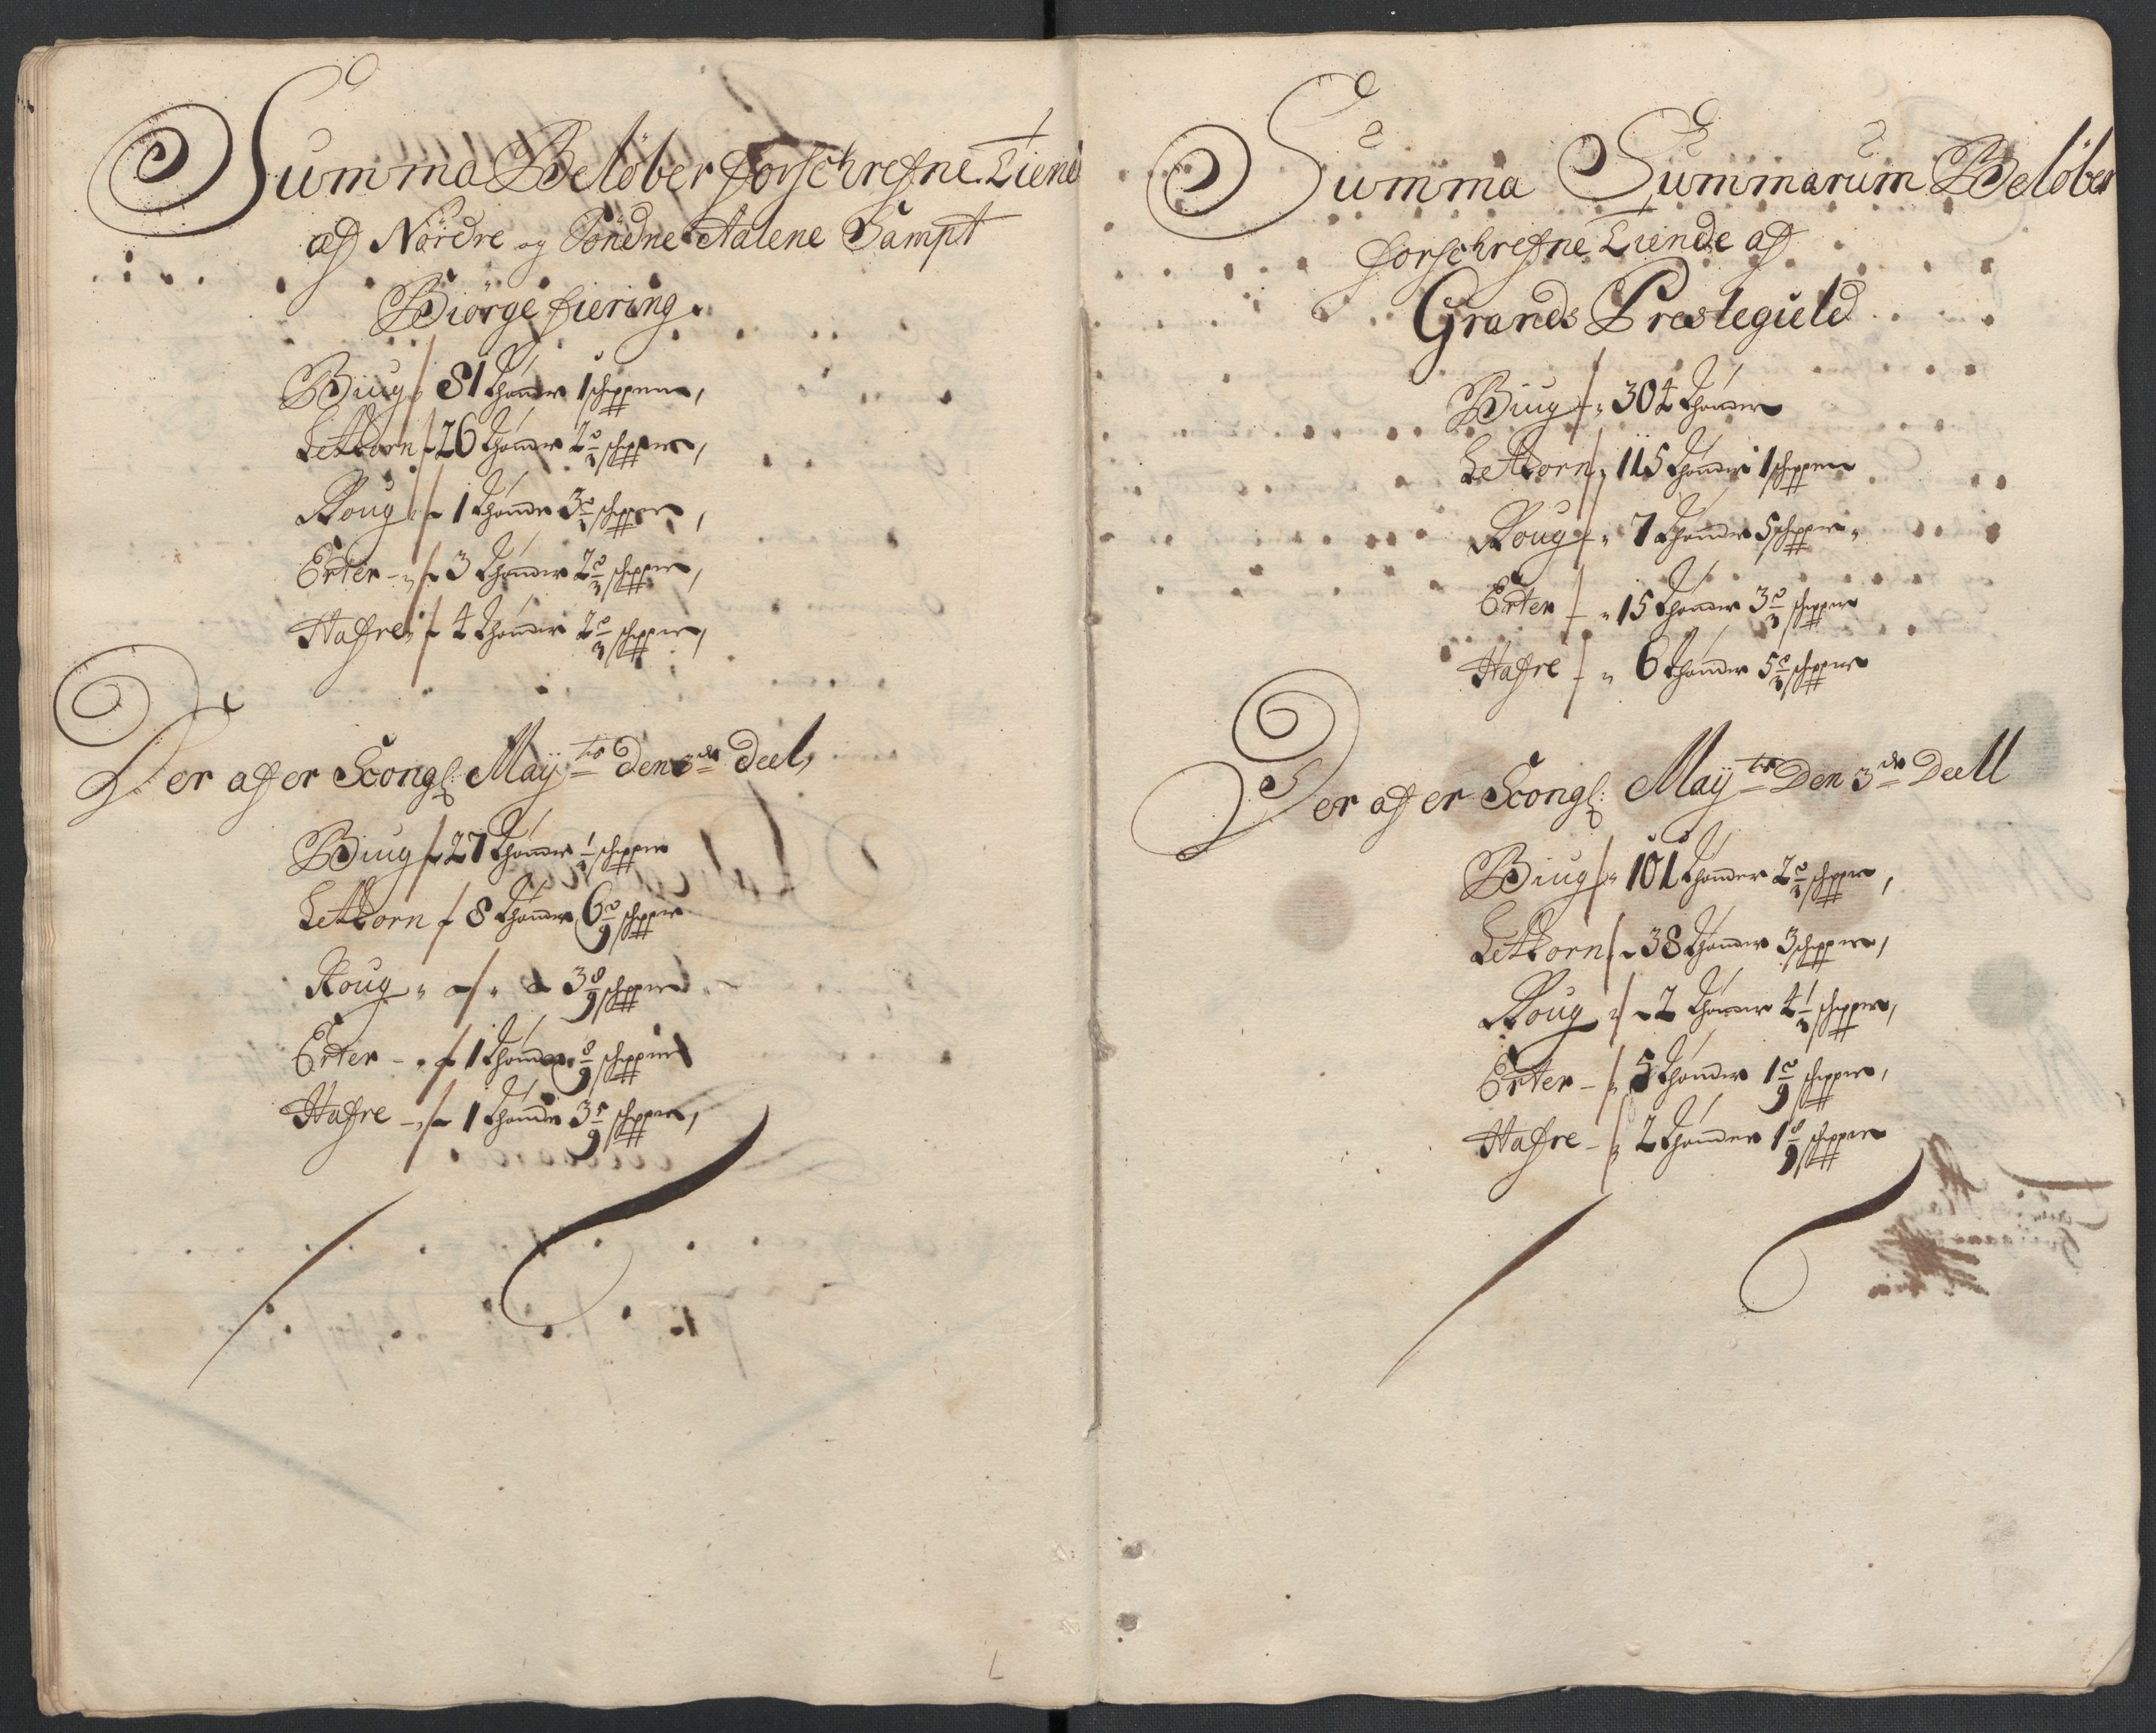 Summa Beløber forschrefne Tiend
af Nordre og Søndre Aalene Sampt
Biørge fiering.
Biug 81 thønder 1 schippene,
Letkorn 26 thønder 2 2/3 schipper,
Roug 1 thønde 3 2/3 schipper,
Erter 3 thønder 2 2/3 schipper,
Hafre 4 thønder 2 2/3 schipper,
Der af er Kongl: Maÿ.ts den 3de deel,
Biug 27 thønder 1/3 schippe
Letkorn 8 thønder 6 2/9 schipper
Roug " " 3 8/9 schipper
Erter 1 thønde 8/9 schippe
Hafre 1 thønde 3 5/9 schipper,
Summa Summarum Beløber
forschrefne Tiende af
Grands Presteguld
Biug 304 thønder
Letkorn 115 thønder 1 schippe
Roug 7 thønder 5 schipper
Erter 15 thønder 3 2/3 schipper
Hafre 6 thønder 5 2/3 schipper
Der af er Kongl: Maÿts Den 3de Deell
Biug 101 thønder 2 2/3 schipper,
Letkorn 38 thønder 3 schipper,
Roug 2 thønder 4 1/3 schipper,
Erter 5 thønder 1 2/9 schipper,
Hafre 2 thønder 1 8/9 schipper